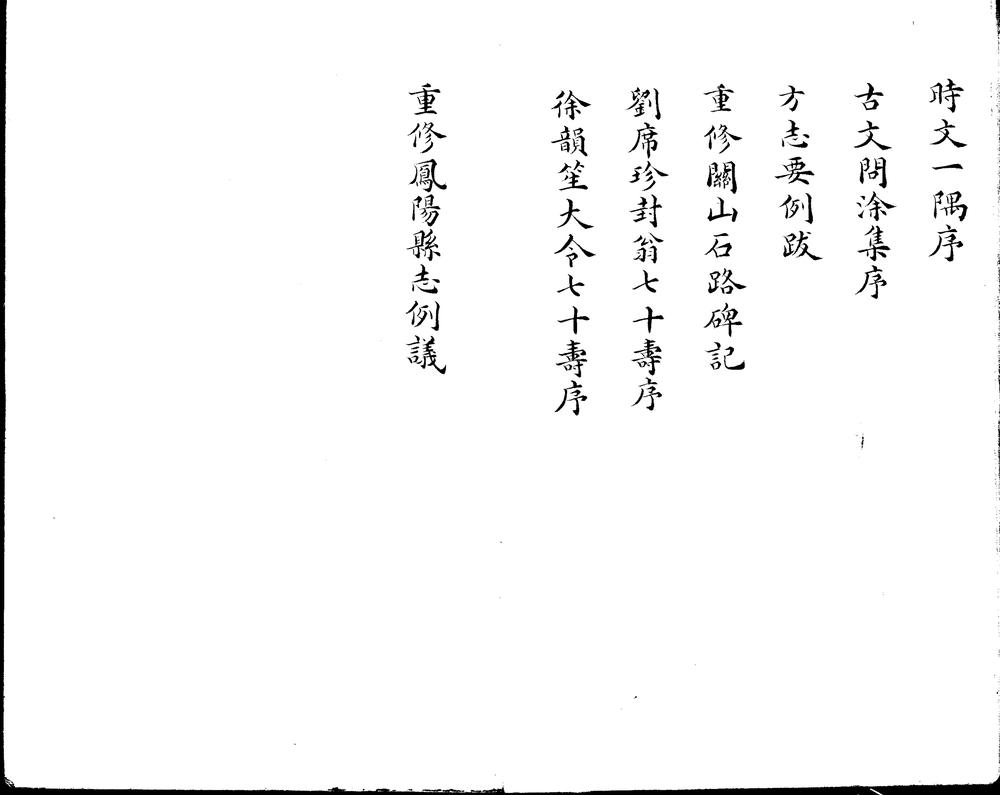 時文一隅序
古文問涂集序
方志要例跋
重修關山石路碑記
劉席珍封翁七十壽序
徐韻笙大令七十壽序
重修鳳陽縣志例議